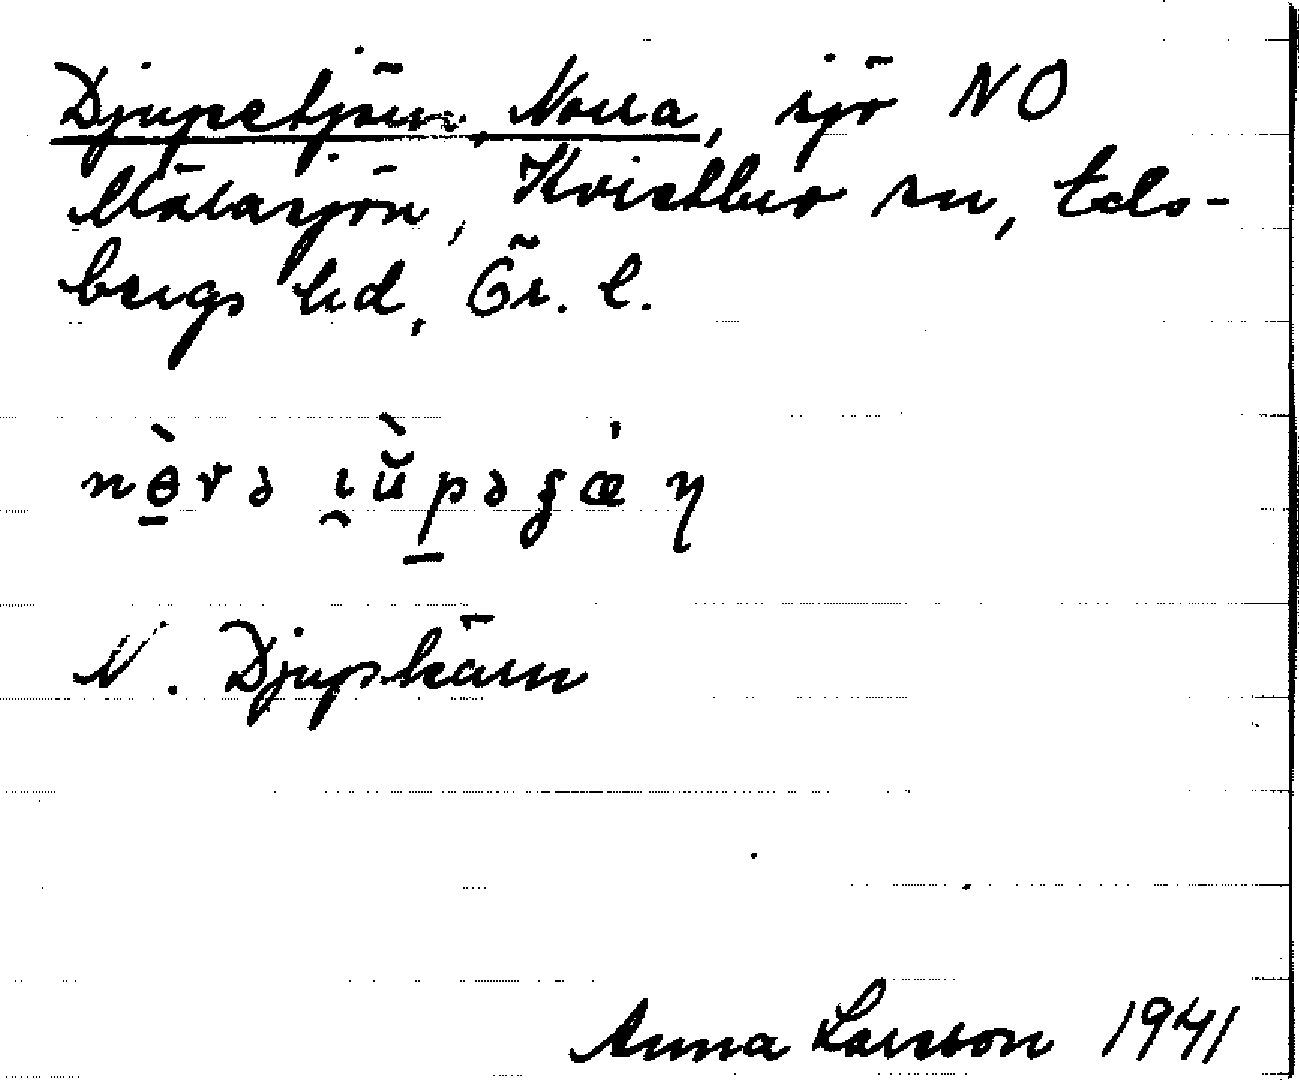 Djupetjärn, Norra, sjö NO
Mälasjön, Kvistbro sn, Eds-
bergs hd, Ör. l.
nè̱rə ı̯ŭ̀p̱əʂǽɳ
N. Djupkärn
Anna Larsson 1941